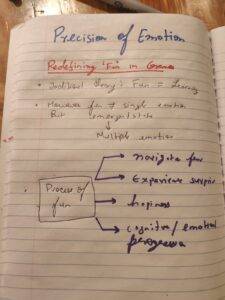 Precision of Emotion
Redefining "Fun" in Games
Traditional Theory: Fun = Learning
However fun ≠ single emotion
But emergent state
↓
Multiple emotion
navigate fear
Experience surprise
Process of
fun
hapiness
cognitive / emotional